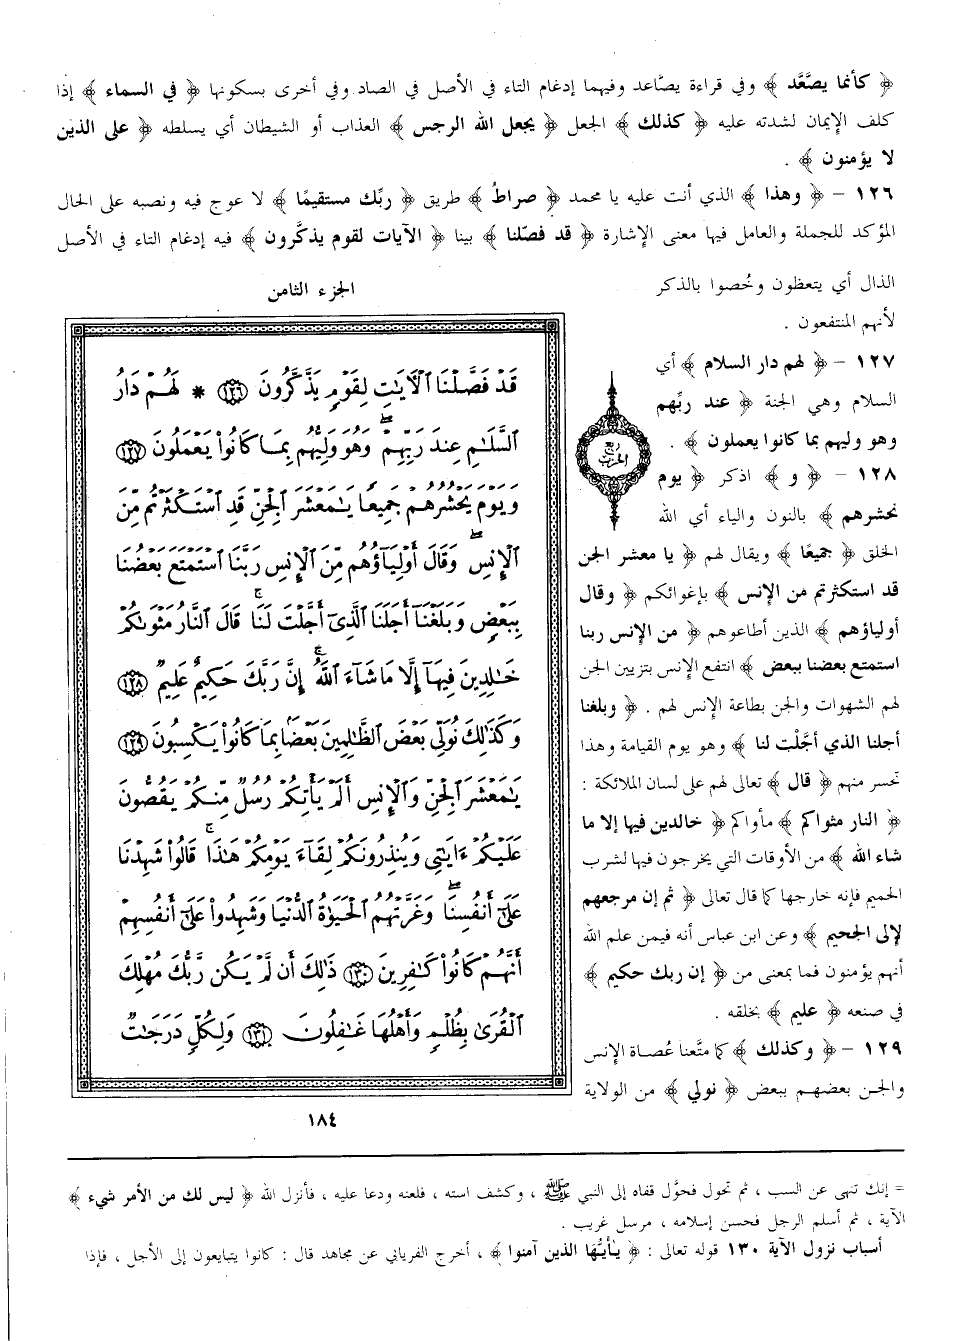 ﴿ كأنما يصَّعَّد ﴾ وفي قراءة يصَّاعد وفيهما إدغام التاء في الأصل في الصاد وفي أخرى بسكونها ﴿ في السماء ﴾ إذا
كلف الإيمان لشدته عليه ﴿ كذلك ﴾ الجعل ﴿ يجعل الله الرجس ﴾ العذاب أو الشيطان أي يسلطه ﴿ على الذين
لا يؤمنون ﴾ .
١٢٦ – ﴿ وهذا ﴾ الذي أنت عليه يا محمد ﴿ صراطُ ﴾ طريق ﴿ ربِّك مستقيمًا ﴾ لا عوج فيه ونصبه على الحال
المؤكد للجملة والعامل فيها معنى الإشارة ﴿ قد فصّلنا ﴾ بينا ﴿ الآيات لقوم يذكَّرون ﴾ فيه إدغام التاء في الأصل
الذال أي يتعظون وخُصوا بالذكر
لأنهم المنتفعون .
١٢٧ – ﴿ لهم دار السلام ﴾ أي
السلام وهي الجنة ﴿ عند ربِّهم
وهو وليهم بما كانوا يعملون ﴾ .
١٢٨ – ﴿ و ﴾ اذكر ﴿ يوم
نحشرهم ﴾ بالنون والياء أي الله
الخلق ﴿ جميعًا ﴾ ويقال لهم ﴿ يا معشر الجن
قد استكثرتم من الإنس ﴾ بإغوائكم ﴿ وقال
أولياؤهم ﴾ الذين أطاعوهم ﴿ من الإنس ربنا
استمتع بعضنا ببعض ﴾ انتفع الإنس بتزيين الجن
لهم الشهوات والجن بطاعة الإنس لهم . ﴿ وبلغنا
أجلنا الذي أجَّلْت لنا ﴾ وهو يوم القيامة وهذا
تحسر منهم ﴿ قال ﴾ تعالى لهم على لسان الملائكة :
﴿ النار مثواكم ﴾ مأواكم ﴿ خالدين فيها إلا ما
شاء الله ﴾ من الأوقات التي يخرجون فيها لشرب
الحميم فإنه خارجها كما قال تعالى ﴿ ثم إن مرجعهم
لإلى الجحيم ﴾ وعن ابن عباس أنه فيمن علم الله
أنهم يؤمنون فما بمعنى من ﴿ إن ربك حكيم ﴾
في صنعه ﴿ عليم ﴾ بخلقه .
١٢٩ – ﴿ وكذلك ﴾ كما متَّعنا عُصاة الإنس
والجن بعضهم ببعض ﴿ نولي ﴾ من الولاية
الجزء الثامن
قَدۡ فَصَّلۡنَا ٱلۡأٓيَٰتِ لِقَوۡمٖ يَذَّكَّرُونَ ١٢٦ * لَهُمۡ دَارُ
ٱلسَّلَٰمِ عِندَ رَبِّهِمۡۖ وَهُوَ وَلِيُّهُم بِمَا كَانُواْ يَعۡمَلُونَ ١٢٧
وَيَوۡمَ يَحۡشُرُهُمۡ جَمِيعٗا يَٰمَعۡشَرَ ٱلۡجِنِّ قَدِ ٱسۡتَكۡثَرۡتُم مِّنَ
ٱلۡإِنسِۖ وَقَالَ أَوۡلِيَآؤُهُم مِّنَ ٱلۡإِنسِ رَبَّنَا ٱسۡتَمۡتَعَ بَعۡضُنَا
بِبَعۡضٖ وَبَلَغۡنَآ أَجَلَنَا ٱلَّذِيٓ أَجَّلۡتَ لَنَاۚ قَالَ ٱلنَّارُ مَثۡوَىٰكُمۡ
خَٰلِدِينَ فِيهَآ إِلَّا مَا شَآءَ ٱللَّهُۚ إِنَّ رَبَّكَ حَكِيمٌ عَلِيمٞ ١٢٨
وَكَذَٰلِكَ نُوَلِّي بَعۡضَ ٱلظَّٰلِمِينَ بَعۡضَۢا بِمَا كَانُواْ يَكۡسِبُونَ ١٢٩
يَٰمَعۡشَرَ ٱلۡجِنِّ وَٱلۡإِنسِ أَلَمۡ يَأۡتِكُمۡ رُسُلٞ مِّنكُمۡ يَقُصُّونَ
عَلَيۡكُمۡ ءَايَٰتِي وَيُنذِرُونَكُمۡ لِقَآءَ يَوۡمِكُمۡ هَٰذَاۚ قَالُواْ شَهِدۡنَا
عَلَىٰٓ أَنفُسِنَاۖ وَغَرَّتۡهُمُ ٱلۡحَيَوٰةُ ٱلدُّنۡيَا وَشَهِدُواْ عَلَىٰٓ أَنفُسِهِمۡ
أَنَّهُمۡ كَانُواْ كَٰفِرِينَ ١٣٠ ذَٰلِكَ أَن لَّمۡ يَكُن رَّبُّكَ مُهۡلِكَ
ٱلۡقُرَىٰ بِظُلۡمٖ وَأَهۡلُهَا غَٰفِلُونَ ١٣١ وَلِكُلّٖ دَرَجَٰتٞ
ربع
الحزب
١٨٤
= إنك تنهى عن السب ، ثم تحول فحوَّل قفاه إلى النبي ﷺ ، وكشف استه ، فلعنه ودعا عليه ، فأنزل الله ﴿ ليس لك من الأمر شيء ﴾
الآية ، ثم أسلم الرجل فحسن إسلامه ، مرسل غريب .
أسباب نزول الآية ١٣٠ قوله تعالى : ﴿ يأيُّها الذين آمنوا ﴾ ، أخرج الفريابي عن مجاهد قال : كانوا يتبايعون إلى الأجل ، فإذا